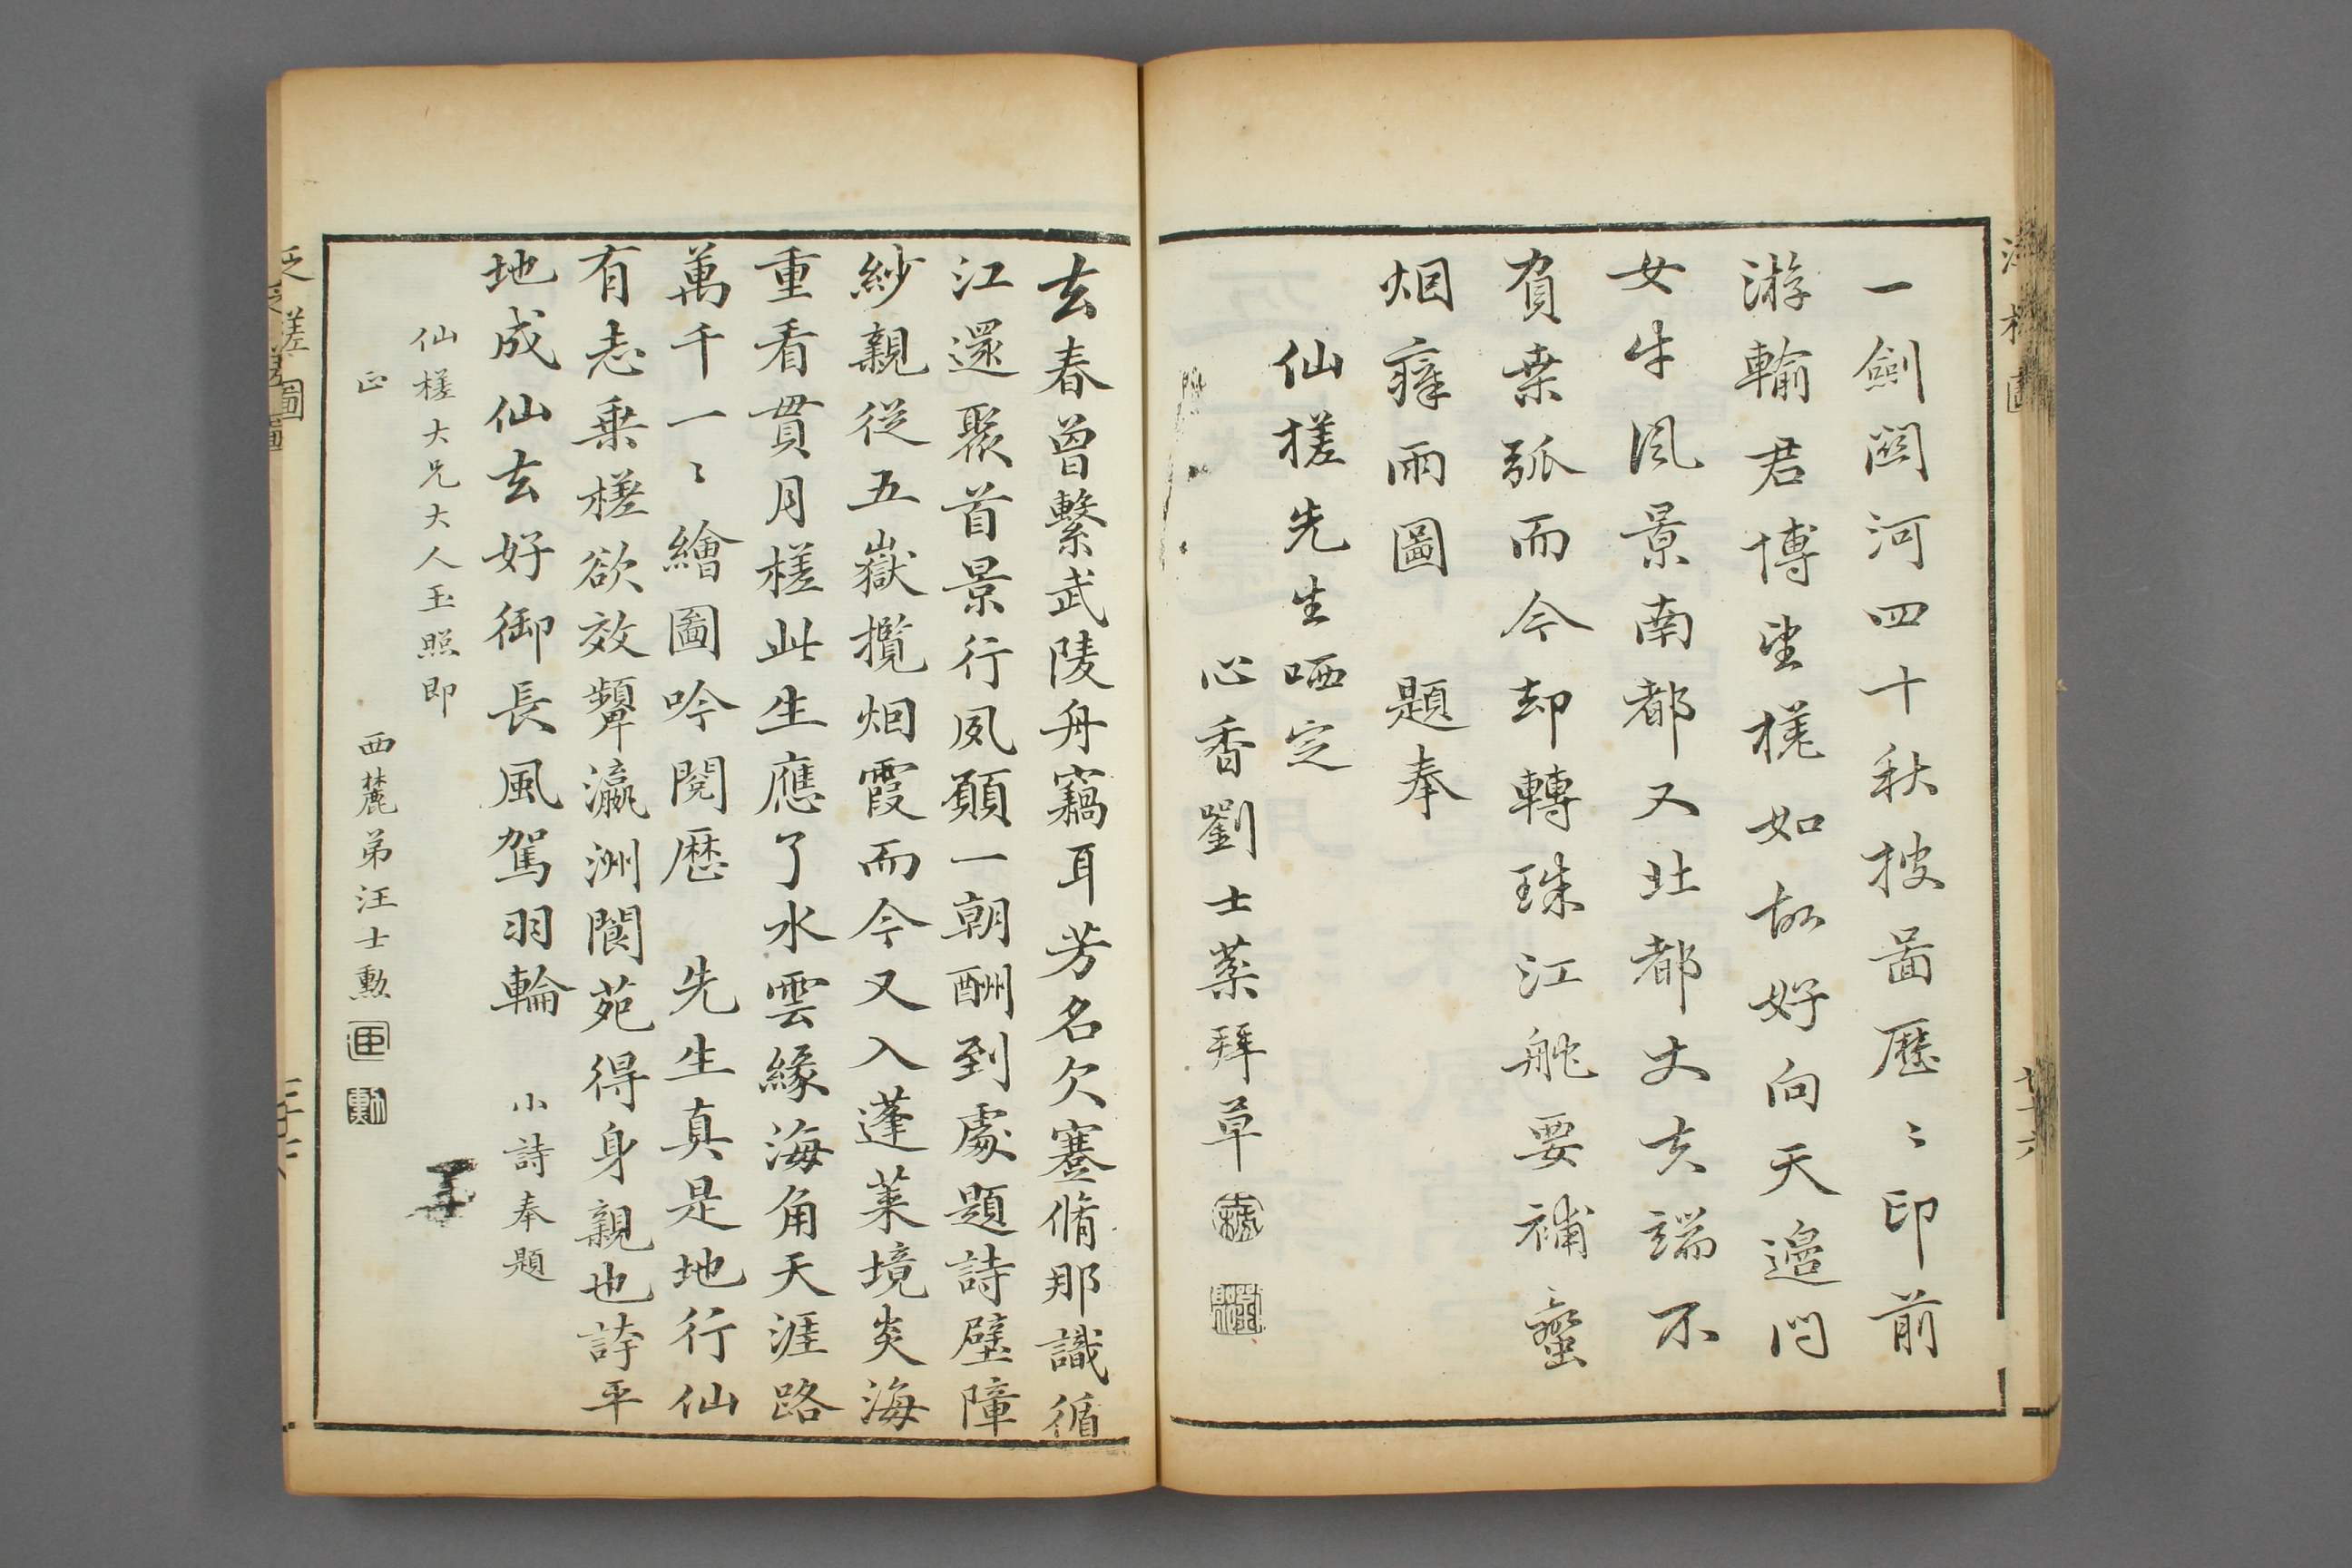 一劍関河四十秋披啚歷〻印前
游輸君博望槎如故好向天邊问
女牛風景南都又北都丈夫端不
負桒弧而今却轉珠江舵要補蠻
烟瘴雨圖　題奉
仙槎先生哂定
心香劉士棻拜草
去春曾繫武陵舟竊耳芳名欠蹇脩那識循
江還聚首景行夙願一朝酬到處題詩壁障
紗親從五嶽攬烟霞而今又入蓬萊境炎海
重看貫月槎此生應了水雲緣海角天涯路
萬千一〻繪圖吟閱歷　先生真是地行仙
有志乗槎欲效顰瀛洲閬苑得身親也誇平
地成仙去好御長風駕羽輪　小詩奉題
仙槎大兄大人玉照即
正
西麓弟汪士勳
泛槎圖